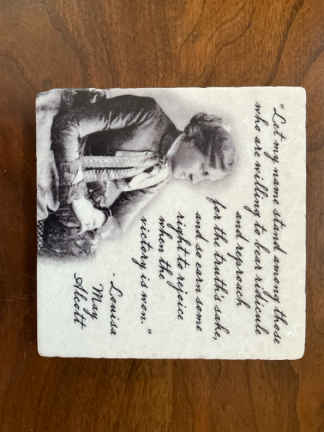 "Let my name stand among those
who are willing to bear ridicule
and reproach
for the truth's sake,
and so earn some
right to rejoice
when the
victory is won."
- Louisa
May
Alcott